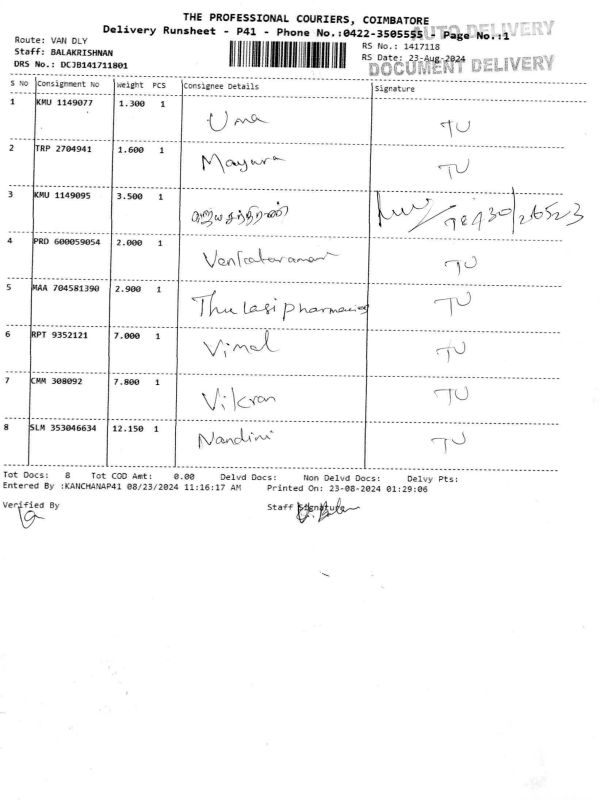 THE PROFESSIONAL COURIERS, COIMBATORE
AUTO DELIVERY
Delivery Runsheet - P41 - Phone No.:0422-3505555 - Page No.:1
Route: VAN DLY
RS No.: 1417118
Staff: BALAKRISHNAN
RS Date: 23-Aug-2024
DRS No.: DCJB141711801
DOCUMENT DELIVERY
S No Consignment No Weight PCS Consignee Details Signature
1 KMU 1149077 1.300 1 Uma TU
2 TRP 2704941 1.600 1 Mayura TU
3 KMU 1149095 3.500 1
4 PRD 600059054 2.000 1 Venkataraman TU
5 MAA 704581390 2.900 1 Thulasi pharmacies TU
6 RPT 9352121 7.000 1 Vimal TU
7 CMM 308092 7.800 1 Vikran TU
8 SLM 353046634 12.150 1 Nandini TU
Tot Docs: 8 Tot COD Amt: 0.00 Delvd Docs: Non Delvd Docs: Delvy Pts:
Entered By :KANCHANAP41 08/23/2024 11:16:17 AM Printed On: 23-08-2024 01:29:06
Verified By Staff Signature